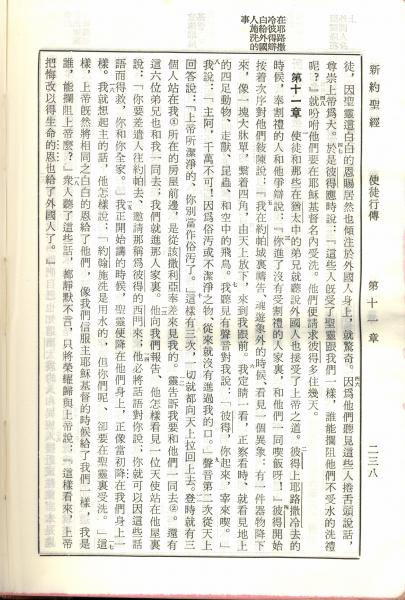 新約聖經　使徒行傳　第十一章　二三八
徒，因聖靈這白白的恩賜居然也傾注於外國人身上，就驚奇。因爲他們聽見這些人捲舌頭說話，
尊崇上帝爲大。於是彼得應時說：「這些人旣受了聖靈跟我們一樣，誰能攔阻他們不受水的洗禮
呢？」就吩咐他們要在耶穌基督名內受洗。他們便請求彼得多住幾天。
在耶路撒
冷彼得辯
白給外國
人施洗的
事
第十一章　使徒和那些在猶太中的弟兄就聽說外國人也接受了上帝之道。彼得上耶路撒冷去的
時候，奉割禮的人和他爭辯說：「你進了沒有受割禮的人家裏，和他們一同喫飯呀！」彼得開始
按着次序對他們敍陳說：「我在約帕城裏禱告，魂遊象外的時候，看見一個異象：有一件器物降下
來，像一塊大牀單，繫着四角，由天上放下，來到我跟前。我定睛一看，正察看時，就看見地上
的四足動物、走獸、昆蟲、和空中的飛鳥。我聽見有聲音對我說：「彼得，你起來，宰來喫。」
我說：「主阿，千萬不可！因爲俗污或不潔淨之物、從來就沒有進過我的口。」聲音第二次從天上
回答說：「上帝所潔淨的、你別當作俗污了。」這樣有三次，一切就都向天上拉回上去。登時就有三
個人站在我①所在的房屋前邊，是從該撒利亞奉差來見我的。靈告訴我要和他們一同去②。還有
這六位弟兄也和我一同去；我們就進那人家裏。他向我們報告、他怎樣看見一位天使站在他屋裏
說：「你要差遣人往約帕去，邀請那稱爲彼得的西門來；他必將話語對你說；你就可以因這些話
語而得救，你和你全家。」我正開講的時候，聖靈便降在他們身上，正像當初降在我們身上一
樣。我就想起主的話，他怎樣說：「約翰施洗是用水的，但你們呢、卻要在聖靈裏受洗。」這
樣，上帝旣然將相同之白白的恩給了他們，像我們信服主耶穌基督的時候給了我們一樣，我是
誰，能攔阻上帝麼？」衆人聽了這些話，都靜默不言，只將榮耀歸與上帝說：「這樣看來，上帝
把悔改以得生命的恩也給了外國人了。」